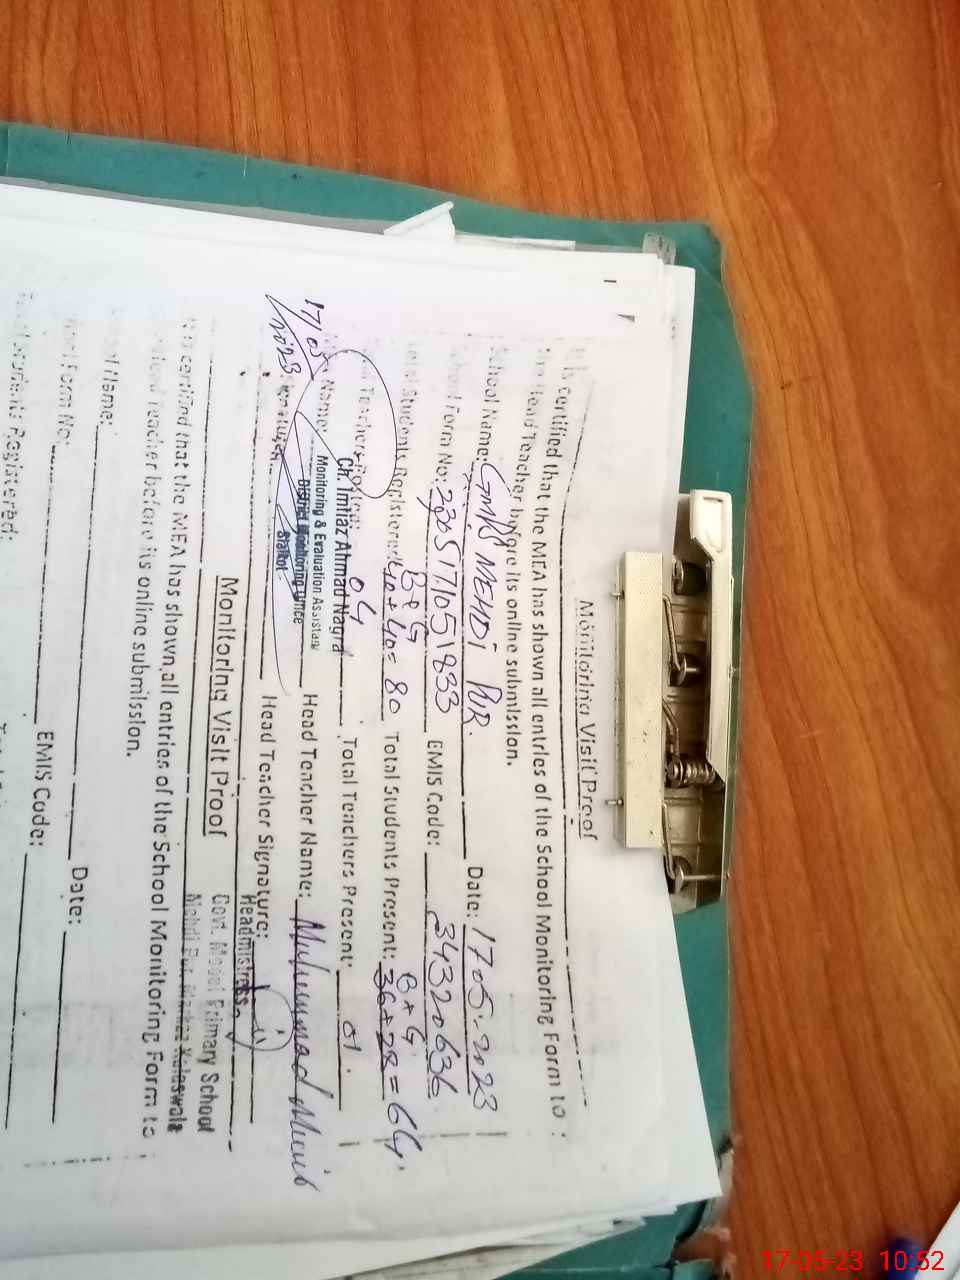 Monitoring Visit Proof
is certified that the MEA has shown all entries of the School Monitoring Form to :
Head Teacher before its online submission.
School Name: GMPS MEHDI PUR. Date: 17-05-2023
Form No: 2305171051833 EMIS Code: 34320636
B+G B+G
Total Students Registered: 40+40= 80 Total Students Present: 36+28=64.
Total Teachers Posted: 04 Total Teachers Present: 01.
Name: Ch. Imtiaz Ahmad Nagra Head Teacher Name: Muhammad Munib
Monitoring & Evaluation Assistant
District Monitoring Office
Sialkot.
17/05/2023
Signature: Head Teacher Signature:
Headmistress
Govt. Model Primary School
Mehdi Pur Markaz Kalaswala
Monitoring Visit Proof
is certified that the MEA has shown all entries of the School Monitoring Form to
Head Teacher before its online submission.
Name: Date:
Form No: EMIS Code:
Students Registered:
17-05-23 10:52